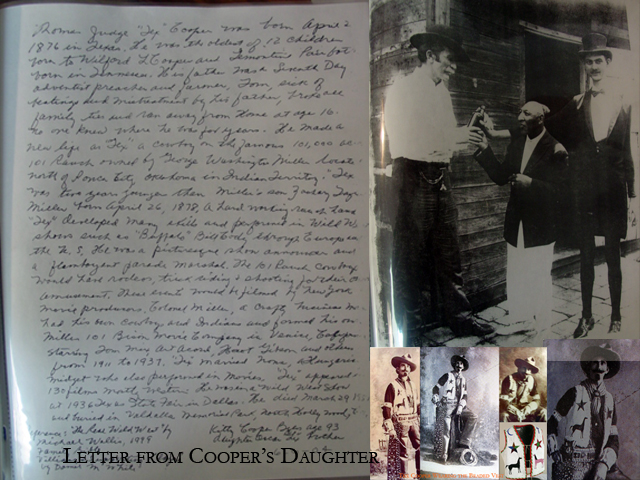 Thomas Judge "Tex" Cooper was born April 2
1876 in Texas. He was the oldest of 12 children
born to Welford L Cooper and
born in Tennessee. His father was a Seventh Day
adventist preacher and farmer, Tom, sick of
beatings and mistreatment by his father, broke all
family ties and ran away from Home at age 16.
No one knew where he was for years. He made a
new life as "Tex" a cowboy on the famous 101,000 ac
101 Ranch owned by George Washington Miller locate
north of Ponca City Oklahoma in Indian Territory. "Tex
was two year younger than Miller's son
Miller born April 26, 1878. A hard working ranch hand
"Tex" developed many skills and performed in Wild W
shows such as "Buffalo" Bill Cody through Europe an
the U.S. He was a picturesque show announcer and
a flamboyant parade marshal. The 101 Ranch Cowboys
would have rodeos, trick riding & shooting for their o
amusement. These event would be filmed by New York
movie producers. Colonel Miller, a crafty business m
had his own Cowboys and Indians and formed his ow
Miller 101 Bison Movie Company in Venice, Calif
starring Tom Mix, Art Acord, Hoot Gibson and others
from 1911 to 1937. "Tex" married Nona, a Hungaria
midget who also performed in Movies. "Tex" appeared
130 films mostly westerns. His was in a Wild West Show
at 1936 Texas State Fair in Dallas. He died March 29
and buried in Valhalla Memorial Park, North Hollywood
"The Real Wild West" by
Michael Wallis, 1999
Kitty Cooper age 93
daughter
by James M White
Letter from Cooper's Daughter
the Beaded Ve